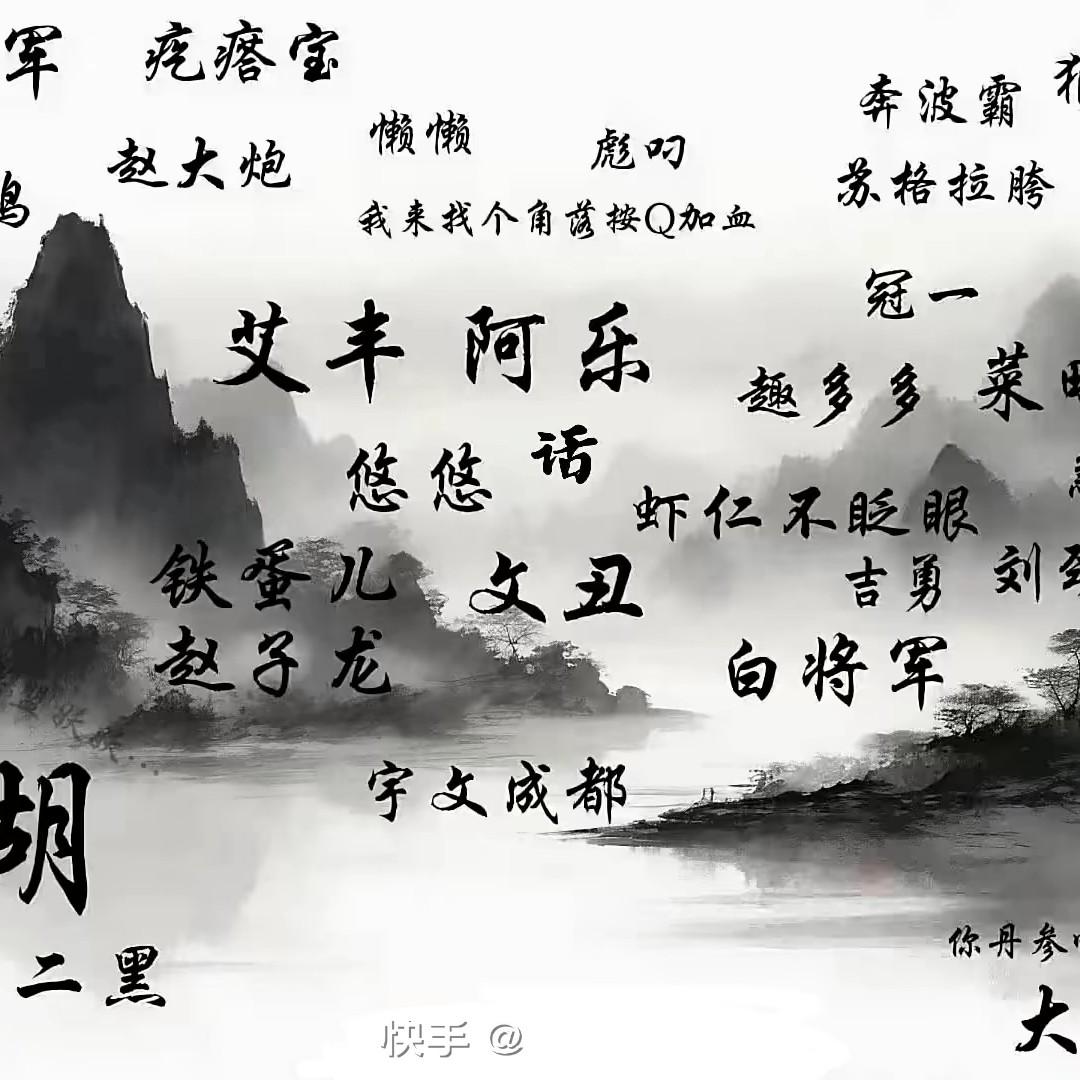 军
疙瘩宝
奔波霸
懒懒
彪叼
赵大炮
苏格拉胯
我来找个角落按Q加血
冠一
艾丰 阿乐
趣多多
菜
悠悠
话
虾仁不眨眼
铁蛋儿
文丑
吉勇
刘
赵子龙
白将军
宇文成都
胡
你丹参
二黑
大
快手 @